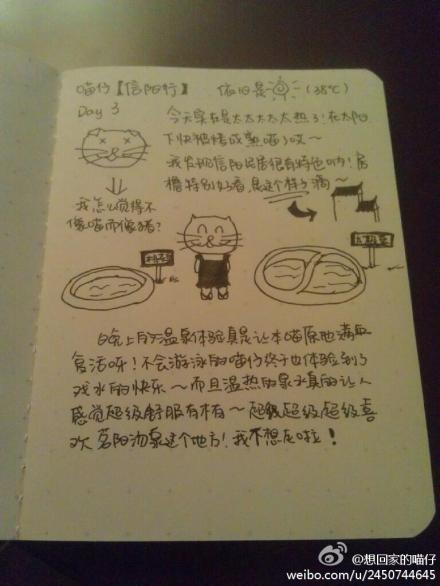 喵仔【信阳行】 依旧是 (38℃)
Day 3
今天实在是太太太太太热了!在太阳
下快被烤成熟喵了哎~
我发现信阳民居很有特色哟!房
檐特别好看,是这个样子滴~
我怎么觉得不
像喵而像猪?
晚上的温泉体验真是让本喵原地满血
复活呀!不会游泳的喵仔终于也体验到了
戏水的快乐~而且温热的泉水真的让人
感觉超级舒服有木有~超级超级超级喜
欢茗阳汤泉这个地方!我不想走啦!
@想回家的喵仔
weibo.com/u/2450744645